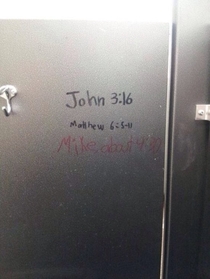 John 3:16
Matthew 6:5-11
Mike about 4:20